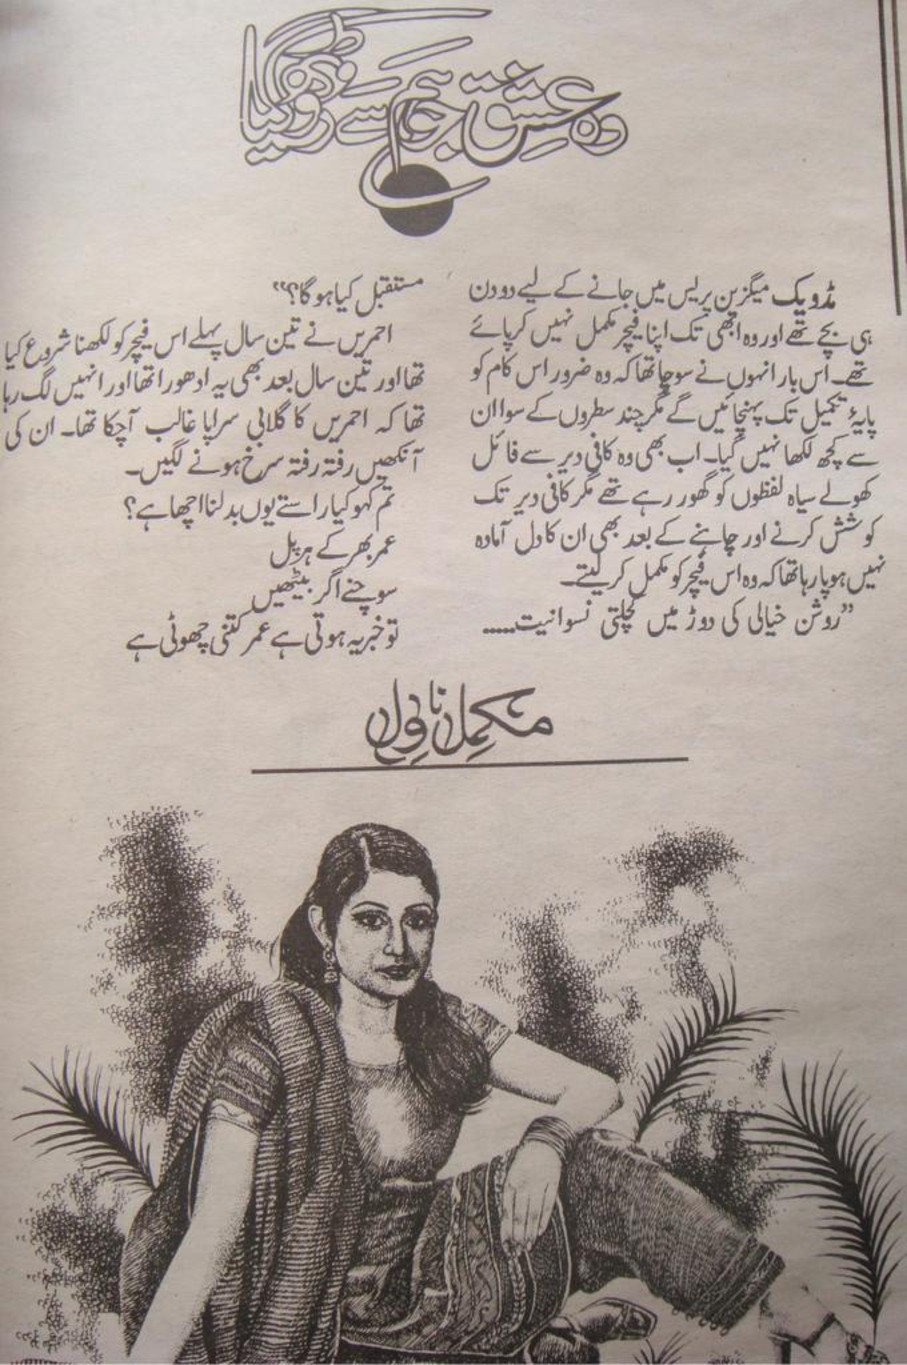 وہ عشق جو ہم سے روٹھ گیا
مڈویک میگزین پریس میں جانے کے لیے دو دن
ہی بچے تھے اور وہ ابھی تک اپنا فیچر مکمل نہیں کر پائے
تھے۔ اس بار انہوں نے سوچا تھا کہ وہ ضرور اس کام کو
پایۂ تکمیل تک پہنچائیں گے مگر چند سطروں کے سوا ان
سے کچھ لکھا نہیں گیا۔ اب بھی وہ کافی دیر سے فائل
کھولے سیاہ لفظوں کو گھور رہے تھے مگر کافی دیر تک
کوشش کرنے اور چاہنے کے بعد بھی ان کا دل آمادہ
نہیں ہو پا رہا تھا کہ وہ اس فیچر کو مکمل کر لیتے۔
”روشن خیالی کی دوڑ میں کچلتی نسوانیت.....
مستقبل کیا ہو گا؟“
احمریں نے تین سال پہلے اس فیچر کو لکھنا شروع کیا
تھا اور تین سال بعد بھی یہ ادھورا تھا اور انہیں لگ رہا
تھا کہ احمریں کا گلابی سراپا غالب آچکا تھا۔ ان کی
آنکھیں رفتہ رفتہ سرخ ہونے لگیں۔
تم کہو کیا راستے یوں بدلنا اچھا ہے؟
عمر بھر کے ہر پل
سوچنے اگر بیٹھیں
تو خبر یہ ہوتی ہے عمر کتنی چھوٹی ہے
مکمل ناول